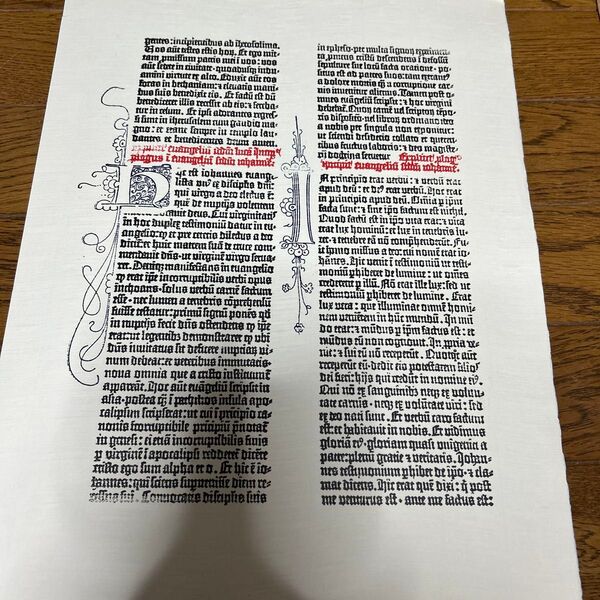 gentes: incipientibus ab iherosolima.
Vos aūt testes estis horū. Et ego mit-
tam promissum patris mei ī vos: vos
aūt sedete in civitate · quoadusq; indu-
amini virtute ex alto. Eduxit aūt eos
foras in bethaniam: et elevatis mani-
bus suis benedixit eis. Et factū est dū
benediceret illis recessit ab eis: et fereba-
tur in celum. Et ipsi adorantes regres-
si sunt in iherusalem cum gaudio mag-
gno: et erant semper in templo laudantes
et benedicentes deum amen.
Explicit euangeliū scdm lucā Incip
plogus ī euangeliū scdm iohannē.
Hic est iohannes euang
lista unus ex discipulis dn̄i:
qui virgo a deo electus ē:
quē de nuptijs volentem
nubere vocavit deus. Cui virginitatis
in hoc duplex testimoniū datur in eu-
angelio: q et pre ceteris dilectus a deo
dicit et huic matrem suā de cruce com-
mendavit dn̄s · ut virginē virgo serva-
ret. Deniq; manifestans in euangelio
q erat ipe incorruptibilis verbi opus
inchoans · solus verbū carnē factum
esse · nec lumen a tenebris cōprehensū
fuisse testatur: primū signū ponēs qd̄
in nuptijs fecit dn̄s ostendens q ipe
erat: ut legentibus demonstraret q ubi
dn̄s invitatus sit deficere nuptiarū vi-
num debeat: et veteribus immutatis ·
nova omnia que a cristo instituunt
appareāt. Hoc aūt euāgeliū scripsit ī
asia · postea q̄ ī pathmos insula apo-
calipsim scripserat: ut cui ī principio ca-
nonis īcorruptibile principiū p̄notat
in genesi: ei etiā incorruptibilis finis
p virginē ī apocalipsi redderet dicēte
cristo ego sum alpha et o. Et hic ē io-
hannes: qui sciens supervenisse diem re-
cessus sui. Convocatis discipulis suis
in epheso · per multa signorū experimen-
ta promens cristū descendens ī defossū
sepulture sue locū facta oratione · po-
situs est ad patres suos: tam extraneus
a dolore mortis q̄ a corruptione car-
nis invenitur alienus. Tamen post o-
mnes euāgeliū scripsit: et hoc virgini
debebat. Quorū tamē vel scriptorū tēpo-
ris dispositio · vel librorū ordinatio ideo
a nobis per singula non exponitur:
ut sciendi desiderio collato et queren-
tibus fructus laboris: et deo magiste-
rij doctrina servetur. Explicit plogus
Incipit euangeliū scdm iohannē.
In principio erat verbū: et verbū erat
apud deū: et deꝰ erat verbū. Hoc erat
in principio apud deū. Omīa p ipm
facta sunt: et sine ipo factum est nichil.
Quod factū est in ipo vita erat: et vita
erat lux hominū: et lux in tenebris lu-
cet · et tenebre eā nō comprehenderūt. Fu-
it homo missus a deo: cui nomen erat io-
hānes. Hic venit in testimoniū ut testi-
moniū phiberet de lumine: ut omēs
crederent p illū. Nō erat ille lux: sed ut
testimoniū phiberet de lumine. Erat
lux vera: que illuminat omnē homi-
nem venientem in hūc mundū. In mū-
do erat: et mūdus p ipm factus est: et
mūdus eū non cognovit. In ppria ve-
nit: et sui eū nō receperūt. Quotqt aūt
receperūt eū · dedit eis potestatem filios
dei fieri: hijs qui credūt in nomine eiꝰ.
Qui nō ex sanguinibꝫ neq; ex volun-
tate carnis · neq; ex volūtate viri: sed
ex deo nati sunt. Et verbū caro factum
est: et habitavit in nobis. Et vidimus
gloriā eiꝰ · gloriam quasi unigeniti a
patre: plenū gracie et veritatis. Iohan-
nes testimonium phibet de ipo · et cla-
mat dicens. Hic erat quē dixi: q̄ post
me venturus est · ante me factus est: